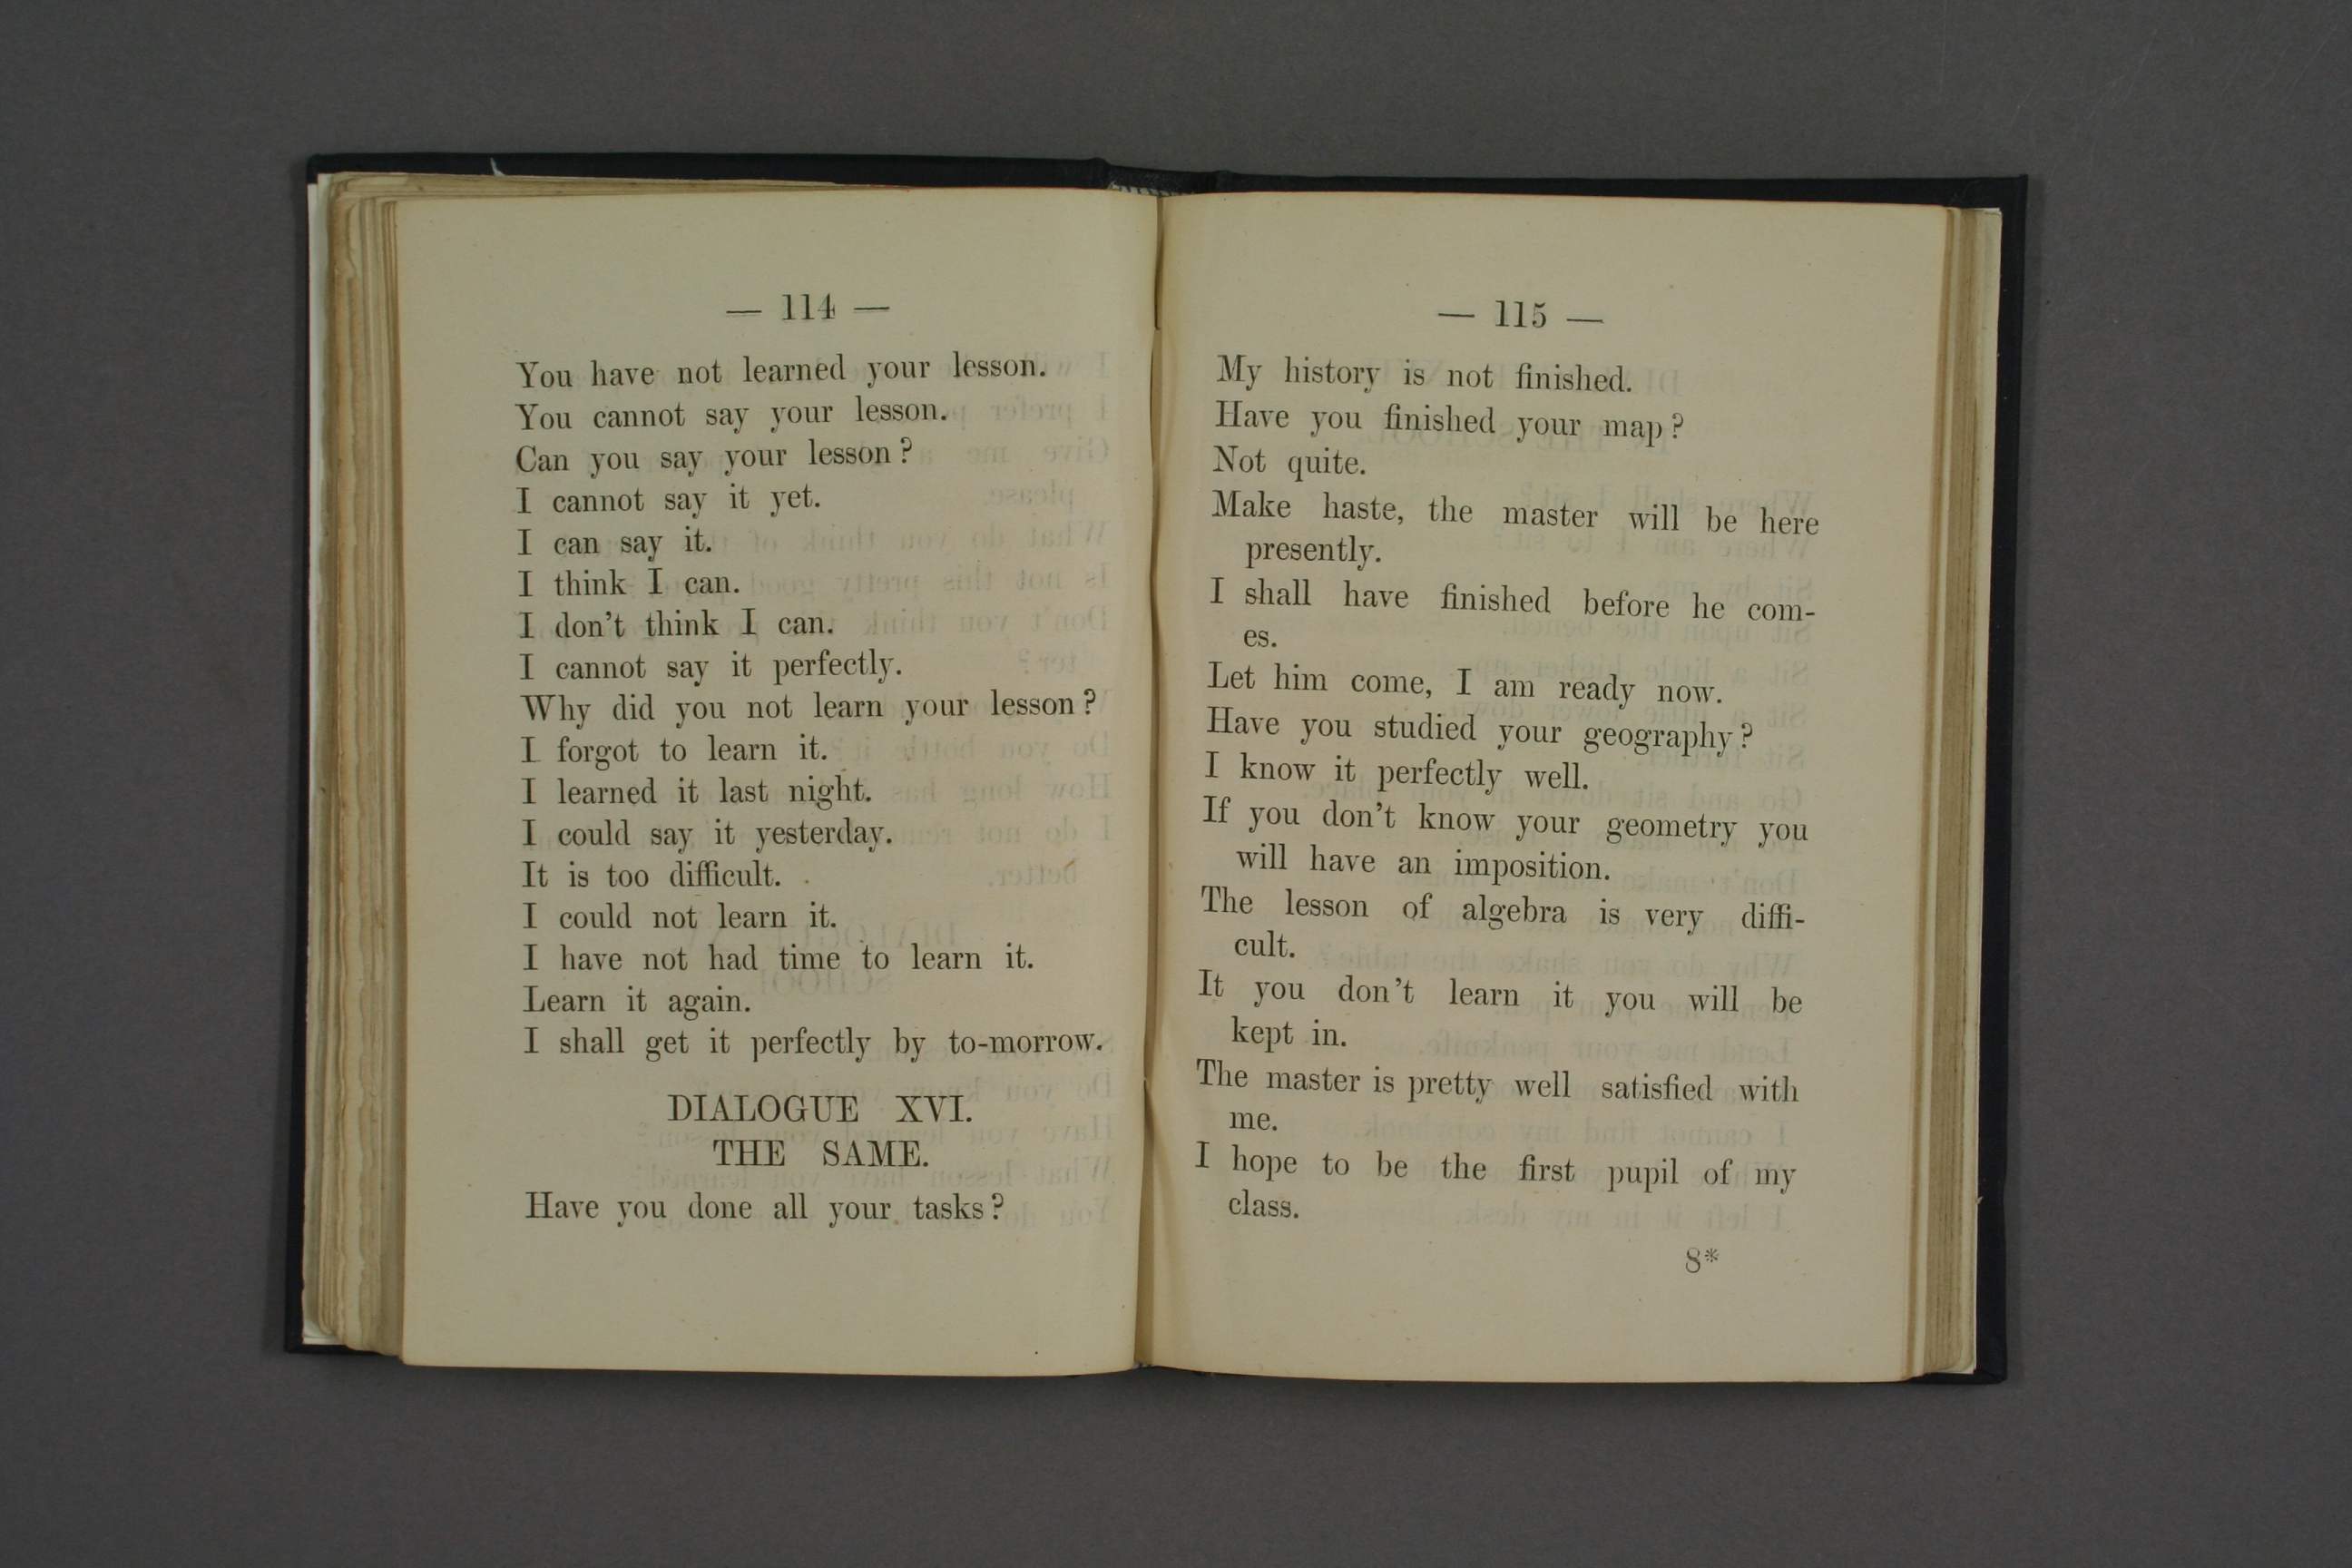 — 114 —
You have not learned your lesson.
You cannot say your lesson.
Can you say your lesson?
I cannot say it yet.
I can say it.
I think I can.
I don't think I can.
I cannot say it perfectly.
Why did you not learn your lesson?
I forgot to learn it.
I learned it last night.
I could say it yesterday.
It is too difficult.
I could not learn it.
I have not had time to learn it.
Learn it again.
I shall get it perfectly by to-morrow.
DIALOGUE XVI.
THE SAME.
Have you done all your tasks?
— 115 —
My history is not finished.
Have you finished your map?
Not quite.
Make haste, the master will be here
presently.
I shall have finished before he com-
es.
Let him come, I am ready now.
Have you studied your geography?
I know it perfectly well.
If you don't know your geometry you
will have an imposition.
The lesson of algebra is very diffi-
cult.
It you don't learn it you will be
kept in.
The master is pretty well satisfied with
me.
I hope to be the first pupil of my
class.
8*